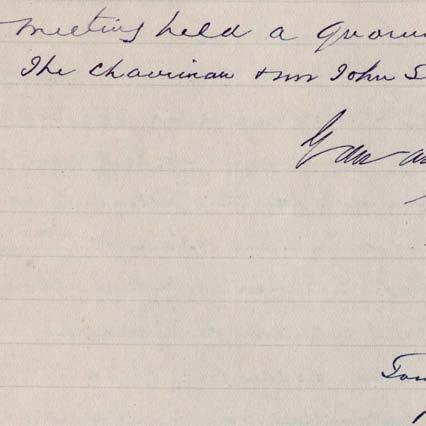 Meeting held a Quoru
The Chairman & Mr John S